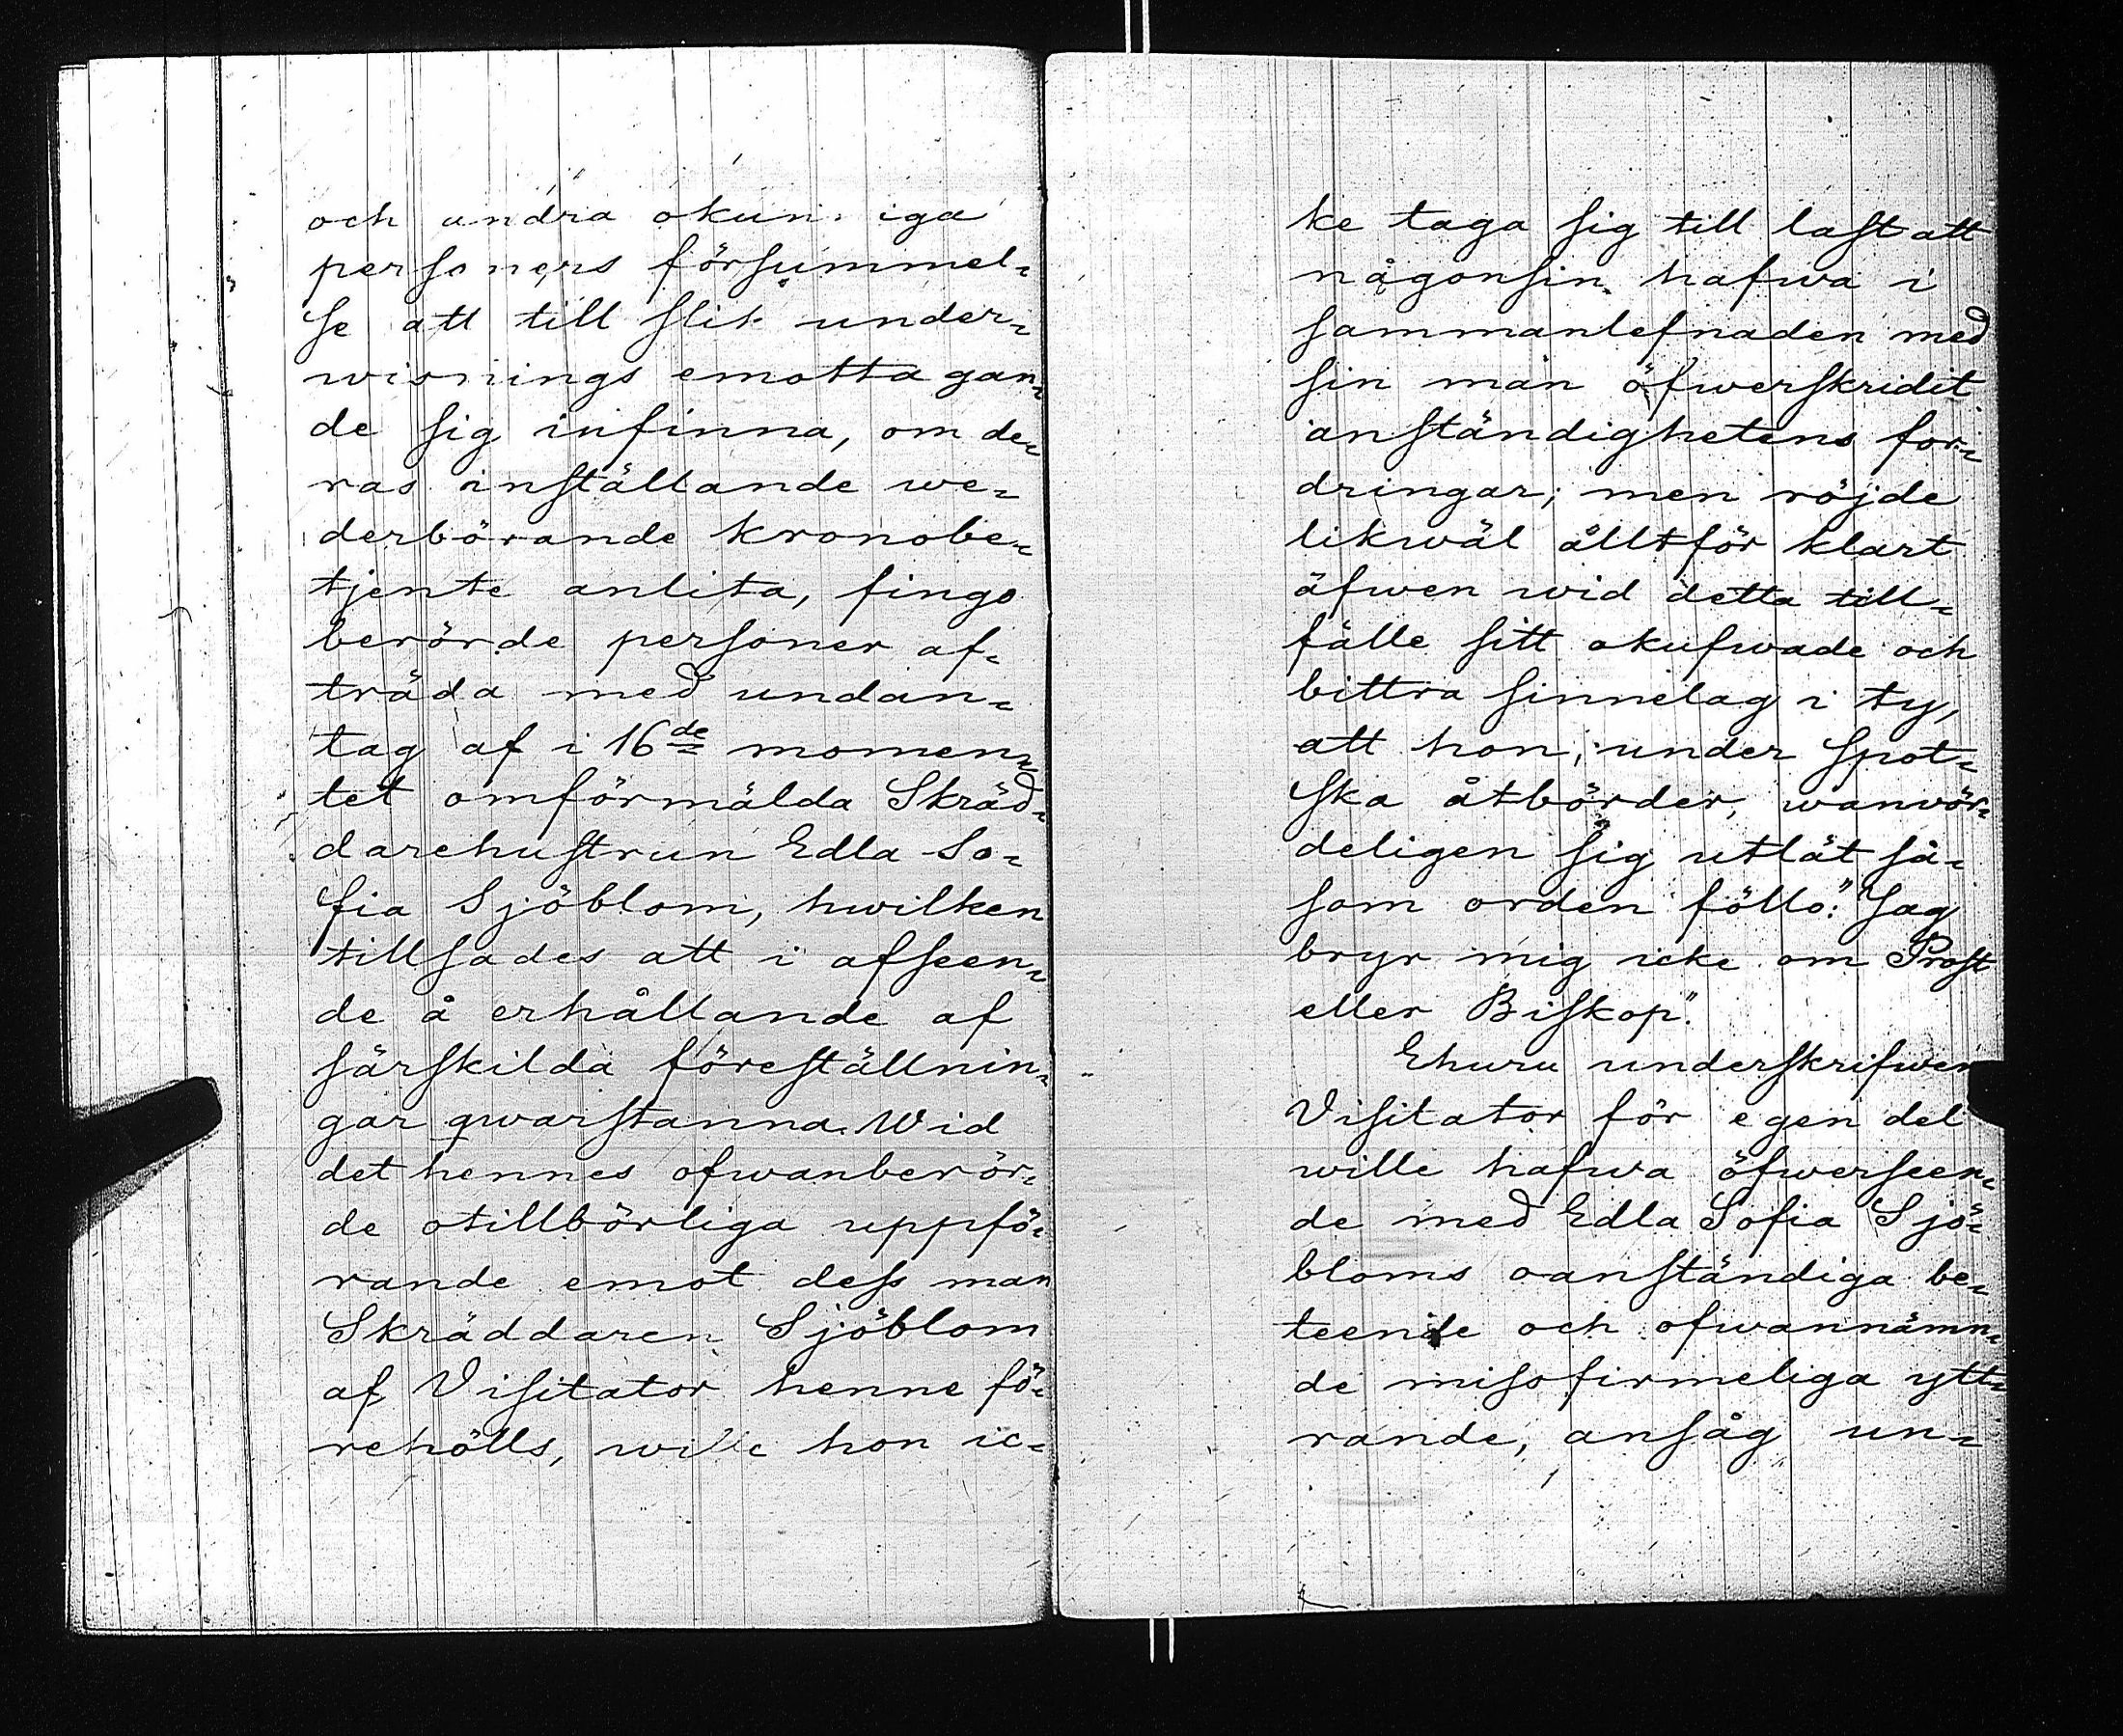 och andra okunniga
personers försummel-
se att till slik under-
wisnings emottagan-
de sig infinna, om de-
ras inställande we-
derbörande kronobe-
tjente anlita, fingo
berörde personer af-
träda med undan-
tag af i 16de momen-
tet omförmälda Skräd-
darehustrun Edla So-
fia Sjöblom, hwilken
tillsades att i afseen-
de å erhållande af
särskilda föreställnin-
gar qwarstanna. Wid
det hennes ofwanberör-
de otillbörliga uppfö-
rande emot dess man
Skräddaren Sjöblom
af Visitator henne fö-
rehölls, wille hon ic-
ke taga sig till last att
någonsin hafwa i
sammanlefnaden med
sin man öfwerskridit
anständighetens for-
dringar; men röjde
likwäl alltför klart
äfwen wid detta till-
fälle sitt okufwade och
bittra sinnelag i ty,
att hon, under spot-
ska åtbörder, wanwör-
deligen sig utlät så-
som orden föllo: "Jag
bryr mig icke om Prost
eller Biskop".
Ehuru underskrifwen
Visitator för egen del
wille hafwa öfwerseen-
de med Edla Sofia Sjö-
bloms oanständiga be-
teende och ofwannämn-
de missfirmeliga ytt-
rande, ansåg un-